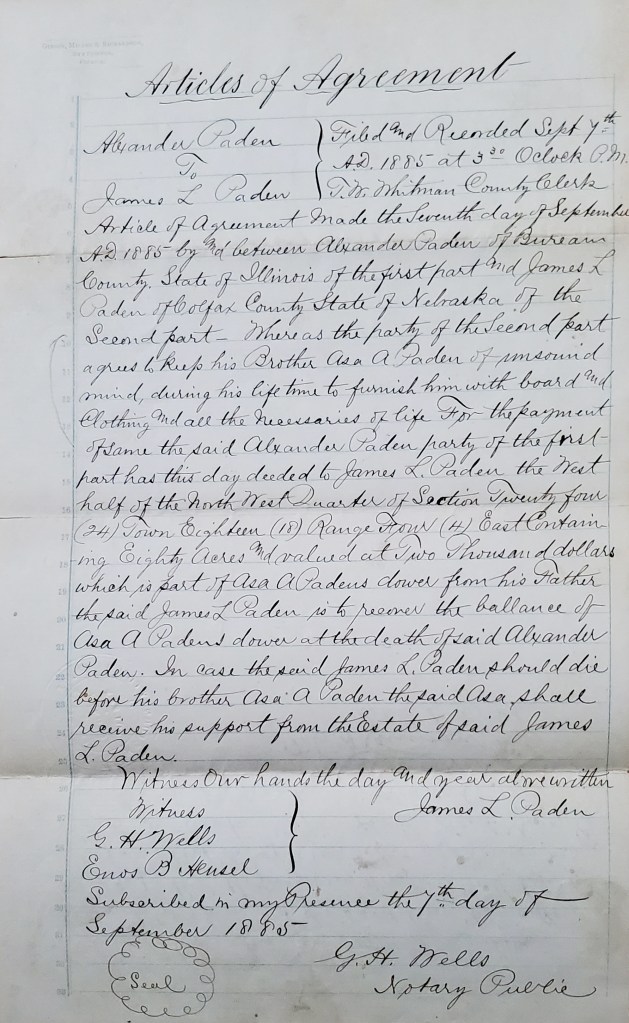 Articles of Agreement
Alexander Paden
To
James L Paden
Filed and Recorded Sept 7th
A.D. 1885 at 3 30 Oclock P.M.
T.W. Whitman County Clerk
Article of Agreement Made the Seventh day of September
A.D. 1885 by and between Alexander Paden of Bureau
County, State of Illinois of the first part and James L
Paden of Colfax County State of Nebraska of the
Second part - Whereas the party of the Second part
agrees to keep his Brother Asa A Paden of unsound
mind, during his life time to furnish him with board and
Clothing and all the Necessaries of life For the payment
of same the said Alxander Paden party of the first-
part has this day deeded to James L. Paden the West
half of the North West Quarter of Section Twenty four
(24) Town Eighteen (18) Range Four (4) East Contain-
ing Eighty Acres and valued at Two Thousand dollars
which is part of Asa A Padens dower from his Father
the said James L Paden is to recover the ballance of
Asa A Padens dower at the death of said Alxander
Paden. In case the said James L. Paden should die
before his brother Asa A Paden the said Asa shall
receive his support from the Estate of said James
L. Paden.
Witness Our hands the day and year above written
Witness
G. H. Wells
Enos B Hensel
James L. Paden
Subscribed in my Presence the 7th day of
September 1885
Seal
G. H. Wells
Notary Public